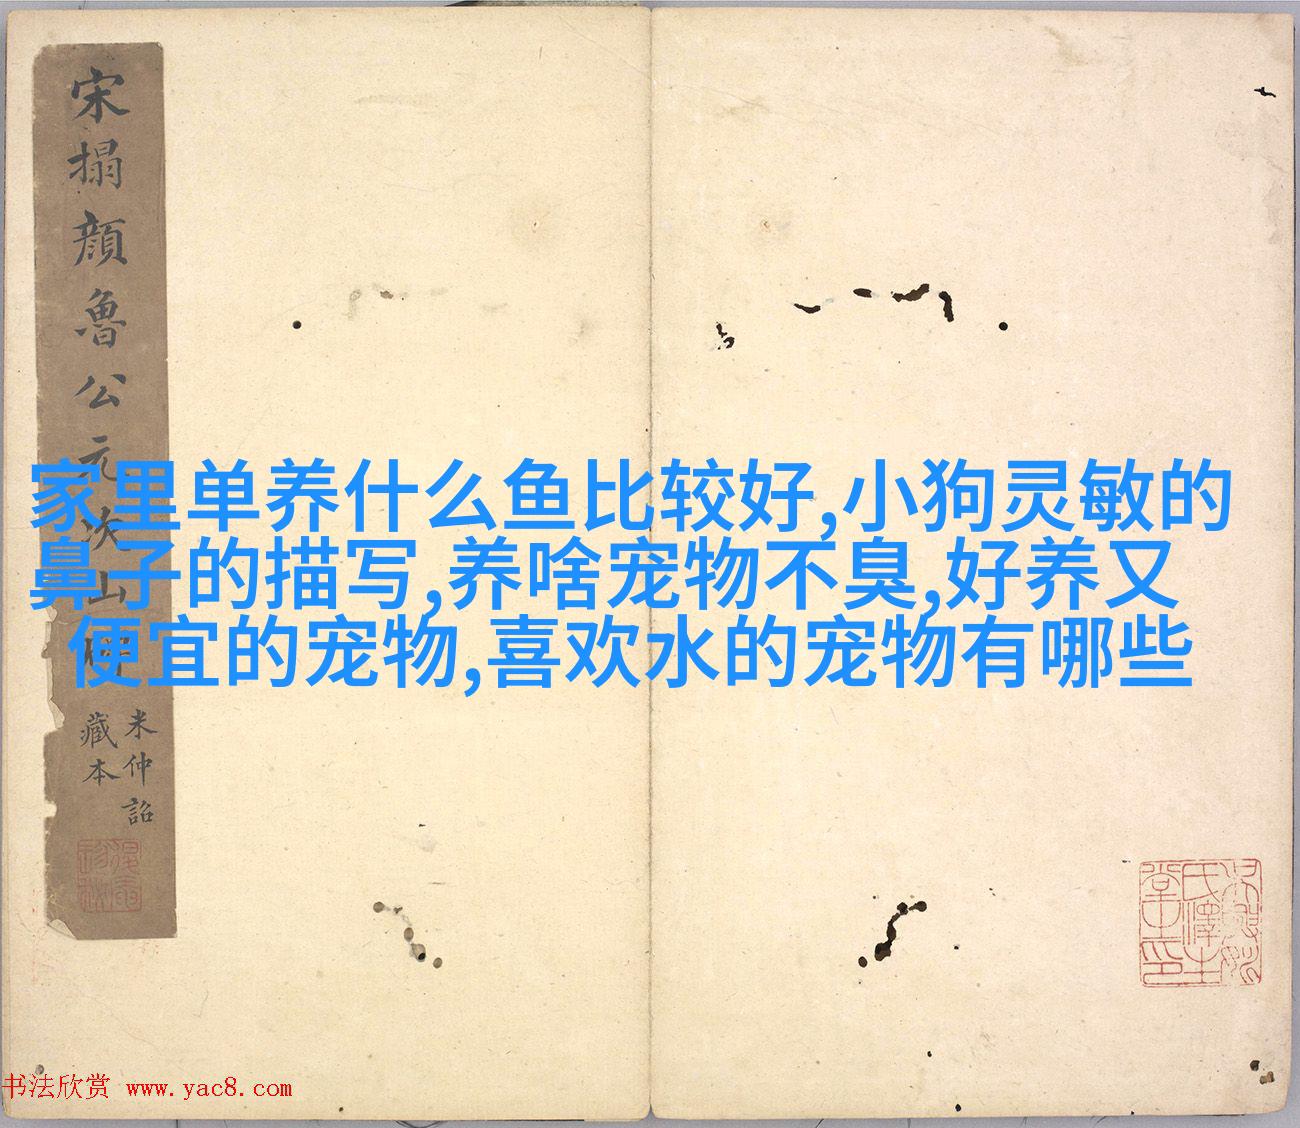 宋搨顔魯公元次山碑
米仲詔
藏本
家里单养什么鱼比较好,小狗灵敏的
鼻子的描写,养啥宠物不臭,好养又
便宜的宠物,喜欢水的宠物有哪些
书法欣赏 www.yac8.com